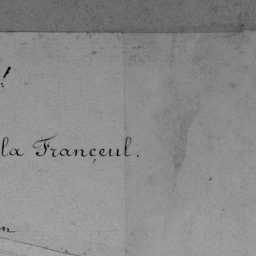 la Françeul.